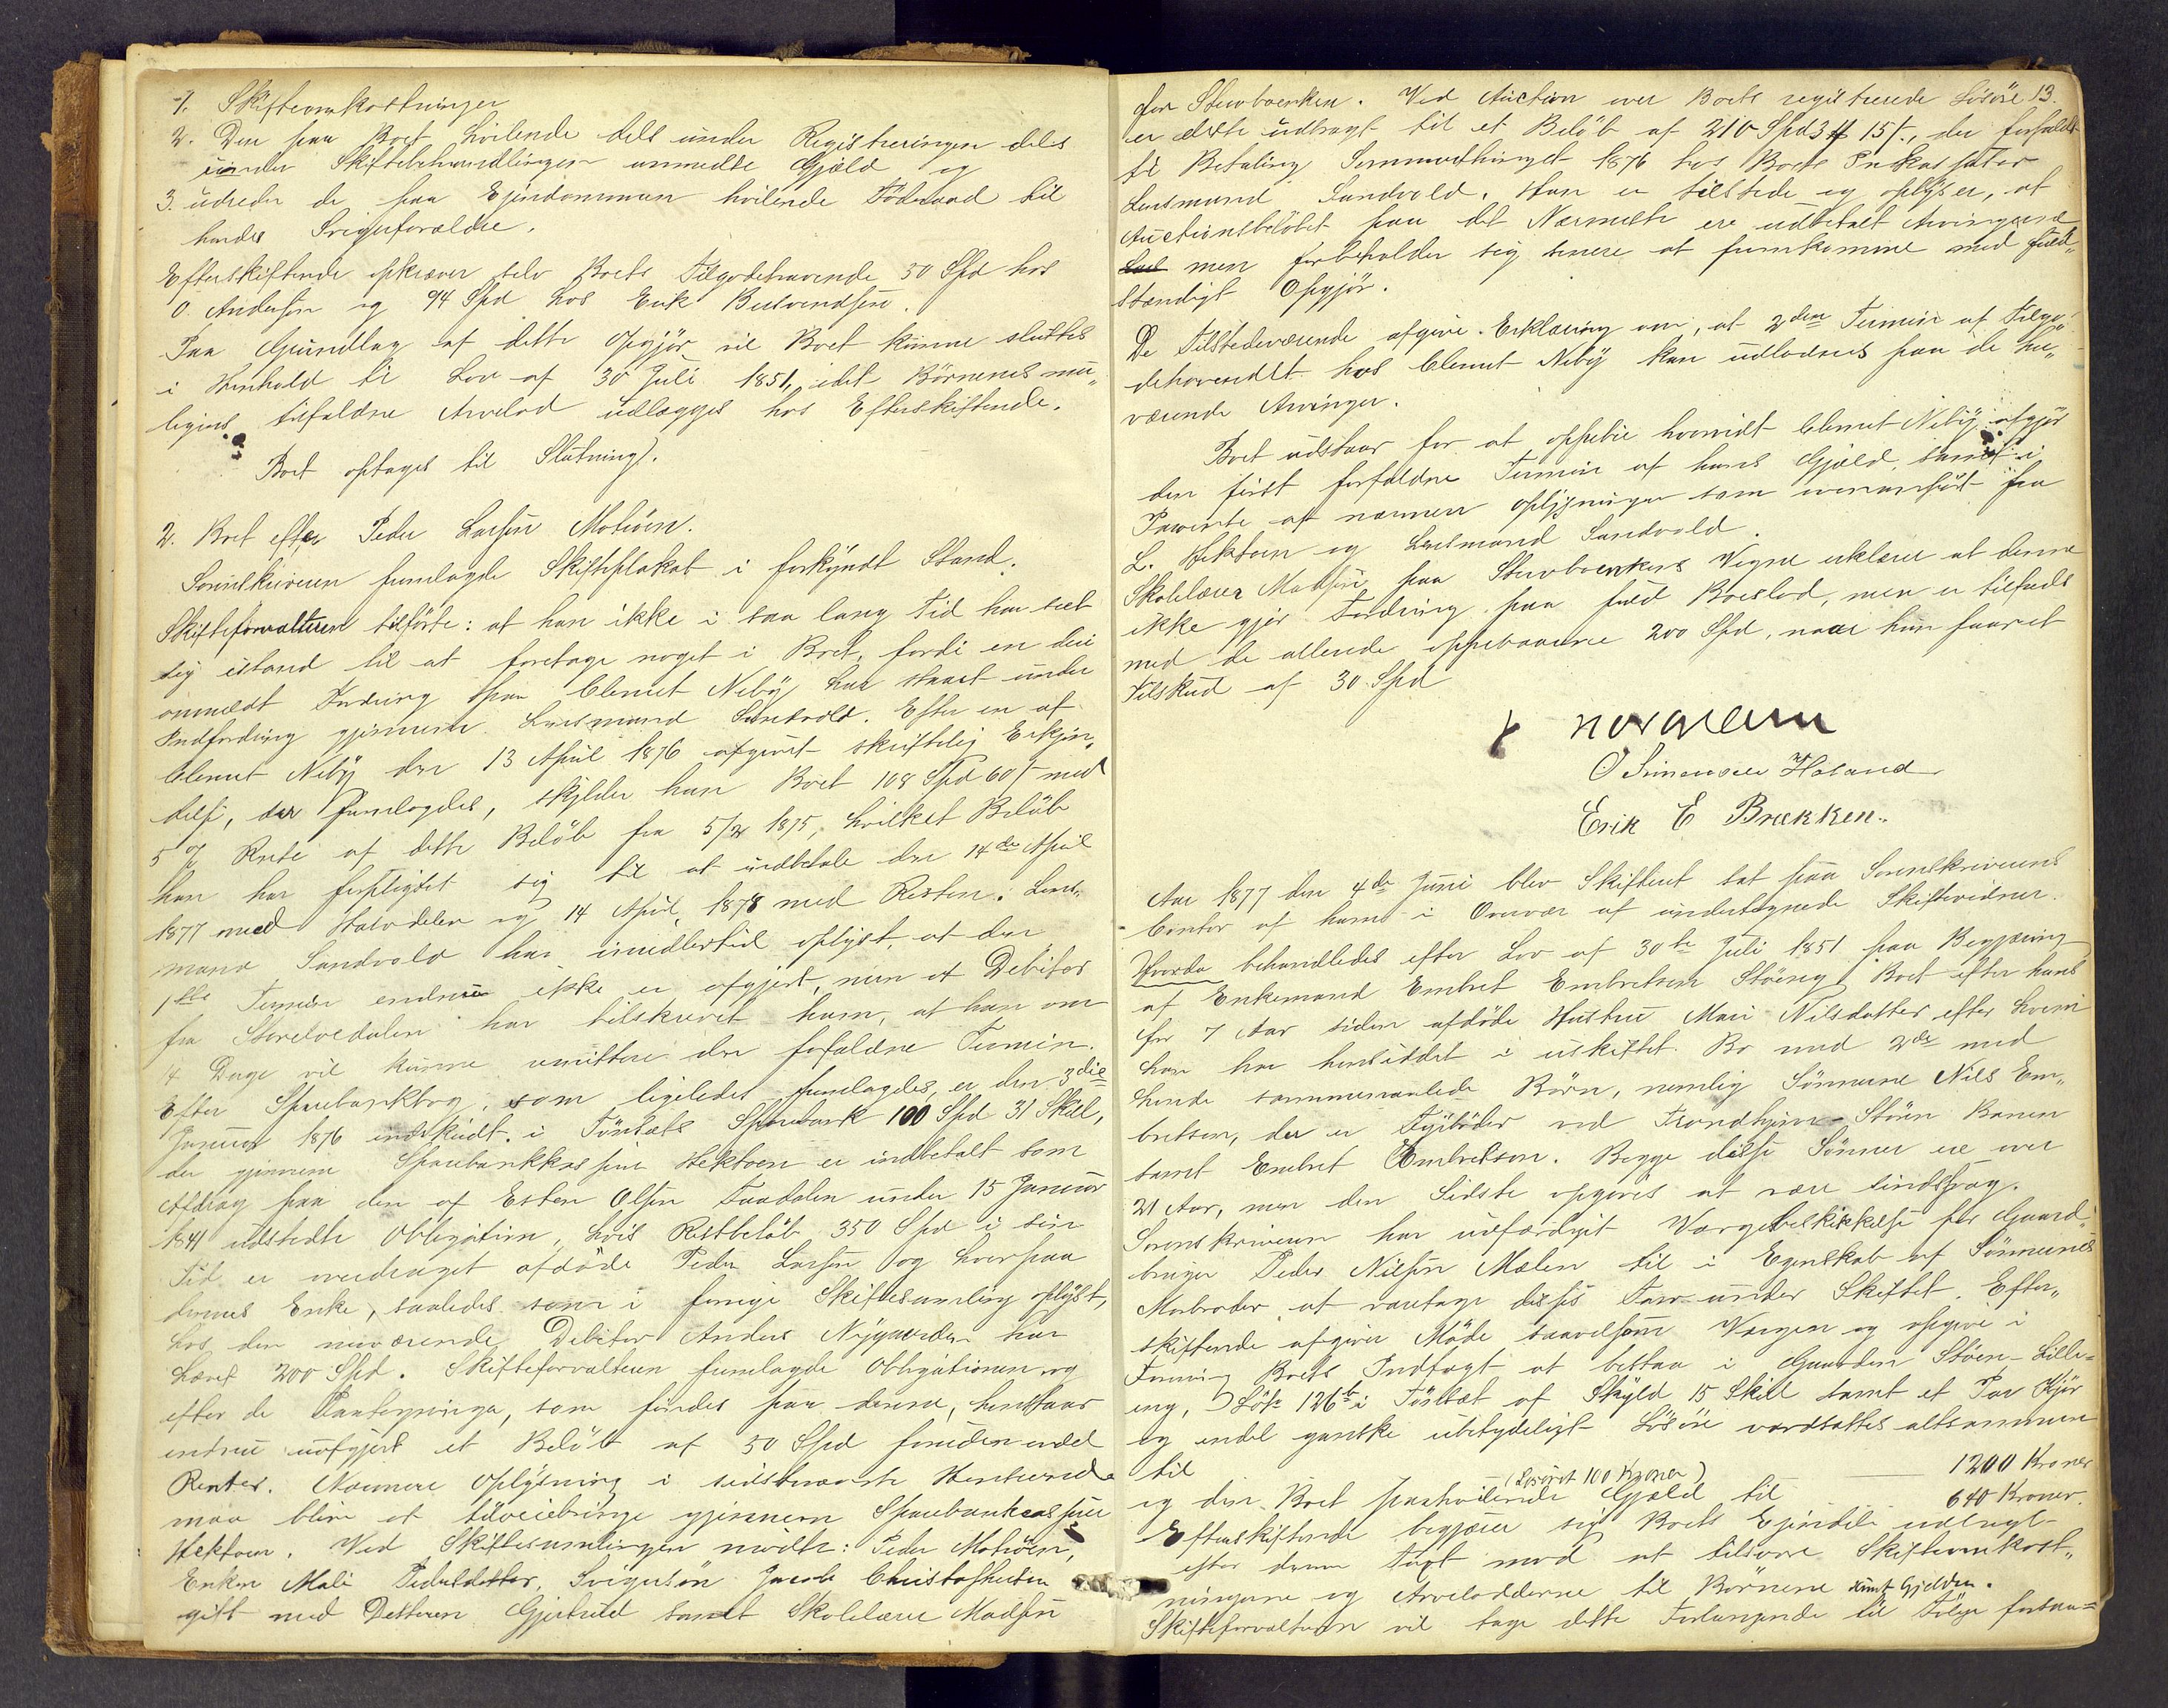 1. Skifteomkostninger
2. Den paa Boet hvilende dels under Registreringen dels
under Skiftebehandlingen anmeldte Gjæld og
3. udreder de paa Ejendommen hvilende Föderaad til
hendes Svigerforældre.
Efterskiftende opkræver selv Boets Tilgodehavende 50 Spd hos
O. Andersen og 94 Spd hos Erik
Paa Grundlag af dette Opgjör vil Boet kunne sluttes
i Henhold til Lov af 30 Juli 1851, idet Börnenes mu„
ligens tilfaldne Arvelod udlægges hos Efterskiftende.
Boet optages til Slutning).
2. Boet efter Peder Larsen Motröen.
Sorenskriveren fremlagde Skifteplakat i forkyndt Stand.
Skifteforvalteren tilförte: at han ikke i saa lang Tid har seet
sig istand til at foretage noget i Boet, fordi en deri
anmeldt Fordring paa Clemet Neby har staaet under
Indfordring gjennem Lensmand Sandvold. Efter en af
Clemet Neby den 13 April 1876 afgivet skriftelig Erkjen„
delse, der fremlagdes, skylder han Boet 108 Spd 60 s med
5 % Rente af dette Belöb fra 5/2 1875, hvilket Belöb
han har forpligtet sig til at indbetale den 14de April
1877 med Halvdelen og 14 April 1878 med Resten. Lens„
mand Sandvold har imidlertid oplyst, at den
1ste Termin endnu ikke er afgjort, men at Debitor
fra Storelvedalen har tilskrevet ham, at han om
4 Dage vil kunne remittere den forfaldne Termin.
Efter Sparebankbog, som ligeledes fremlagdes, er den 3die
Januar 1876 indskudt i Tönsets Sparebank 100 Spd 31 Skil,
der gjennem Sparebankkasserer Hektoen er indbetalt som
Afdrag paa den af Esten Olsen Taadalen under 15 Januar
1841 udstedte Obligation, hvis Restbelöb 350 Spd i sin
Tid er overdraget afdöde Peder Larsen og hvorpaa
dennes Enke, saaledes som i forrige Skiftesamling oplyst,
hos den nuværende Debitor Anders Nygaarden har
hævet 200 Spd. Skifteforvalteren fremlagde Obligationen og
efter de Paategninger, som findes paa denne, henstaar
endnu uafgjort et Belöb af 50 Spd foruden endel
Renter. Nærmere Oplysning i sidstnævnte Henseende
maa blive at tilveiebringe gjennem Sparebankkasserer
Hektoen. Ved Skiftesamlingen mödte: Peder Motröen,
Enken Mali Pedersdatter, Svigersön Jacob Christophersen
gift med Datteren Gjertrud samt Skolelærer Madsen
for Stervboenken. Ved Auction over Boets registrerede Lösöre 13.
er dette udbragt til et Belöb af 210 Spd 3 # 15 s., der forfaldt
til Betaling Sommerthinget 1876 hos Boets Inkassator
Lensmand Sandvold. Han er tilstede og oplyser, at
Auctionsbelöbet paa det Nærmeste ere udbetalt Arvingerne
men forbeholder sig senere at fremkomme med fuld„
stændigt Opgjör.
De Tilstedeværende afgive Erklæring om, at 2den Termin af Tilgo„
dehavendet hos Clemet Neby kan udloddes paa de nu„
værende Arvinger.
Boet udstaar for at oppebie hvorvidt Clemet Neby afgjör
den först forfaldne Termin af hans Gjæld, samt i
Paavente af nærmere Oplysninger som ovenanfört fra
L. Hektoen og Lensmand Sandvold.
Skolelærer Madsen paa Stervboenkens Vegne erklærer at denne
ikke gjör Fordring paa fuld Boeslod, men er tilfreds
med de allerede oppebaarne 200 Spd, naar hun faar et
Tilskud af 30 Spd
O Simensen Hosand
Erik E Brækken.
Aar 1877 den 4de Juni blev Skifteret sat paa Sorenskriverens
Contor af ham i Overvær af undertegnede Skiftevidner.
Hvorda behandledes efter Lov af 30te Juli 1851 paa Begjæring
af Enkemand Embret Embretsen Stöeng Boet efter hans
for 7 Aar siden afdöde Hustru Mari Nilsdatter efter hvem
han har hensiddet i uskiftet Bo med 2de med
hende sammenavlede Börn, nemlig Sönnerne Nils Em„
bretsen, der er ved Trondhjem-Stören Banen
samt Embret Embretsen. Begge disse Sönner ere over
21 Aar, men den Sidste opgives at være sindssvag.
Sorenskriveren har udfærdiget Værgebeskikkelse for Gaard„
bruger Peder Nilsen Mælen til i Egenskab af Sönnernes
Morbroder at varetage disses Tarv under Skiftet. Efter„
skiftende afgiver Möde saavelsom Værgen og opgive i
Forening Boets Indtægt at bestaa i Gaarden Stöen-Lille=
eng, Löbe 126b i Tönset af Skyld 15 Skill samt et Par Kjör
og endel ganske ubetydeligt Lösöre værdsattes altsammen
til 1200 Kroner
(Lösöret 100 Kroner)
og den Boet paahvilende Gjæld til 640 Kroner.
Efterskiftende begjærer sig Boets Ejendele udlagt
efter denne Taxt mod at tilsvare Skifteomkost„
ningerne og Arvelodderne til Börnene samt Gjelden.
Skifteforvalteren vil tage dette Forlangende til Fölge forsaa=